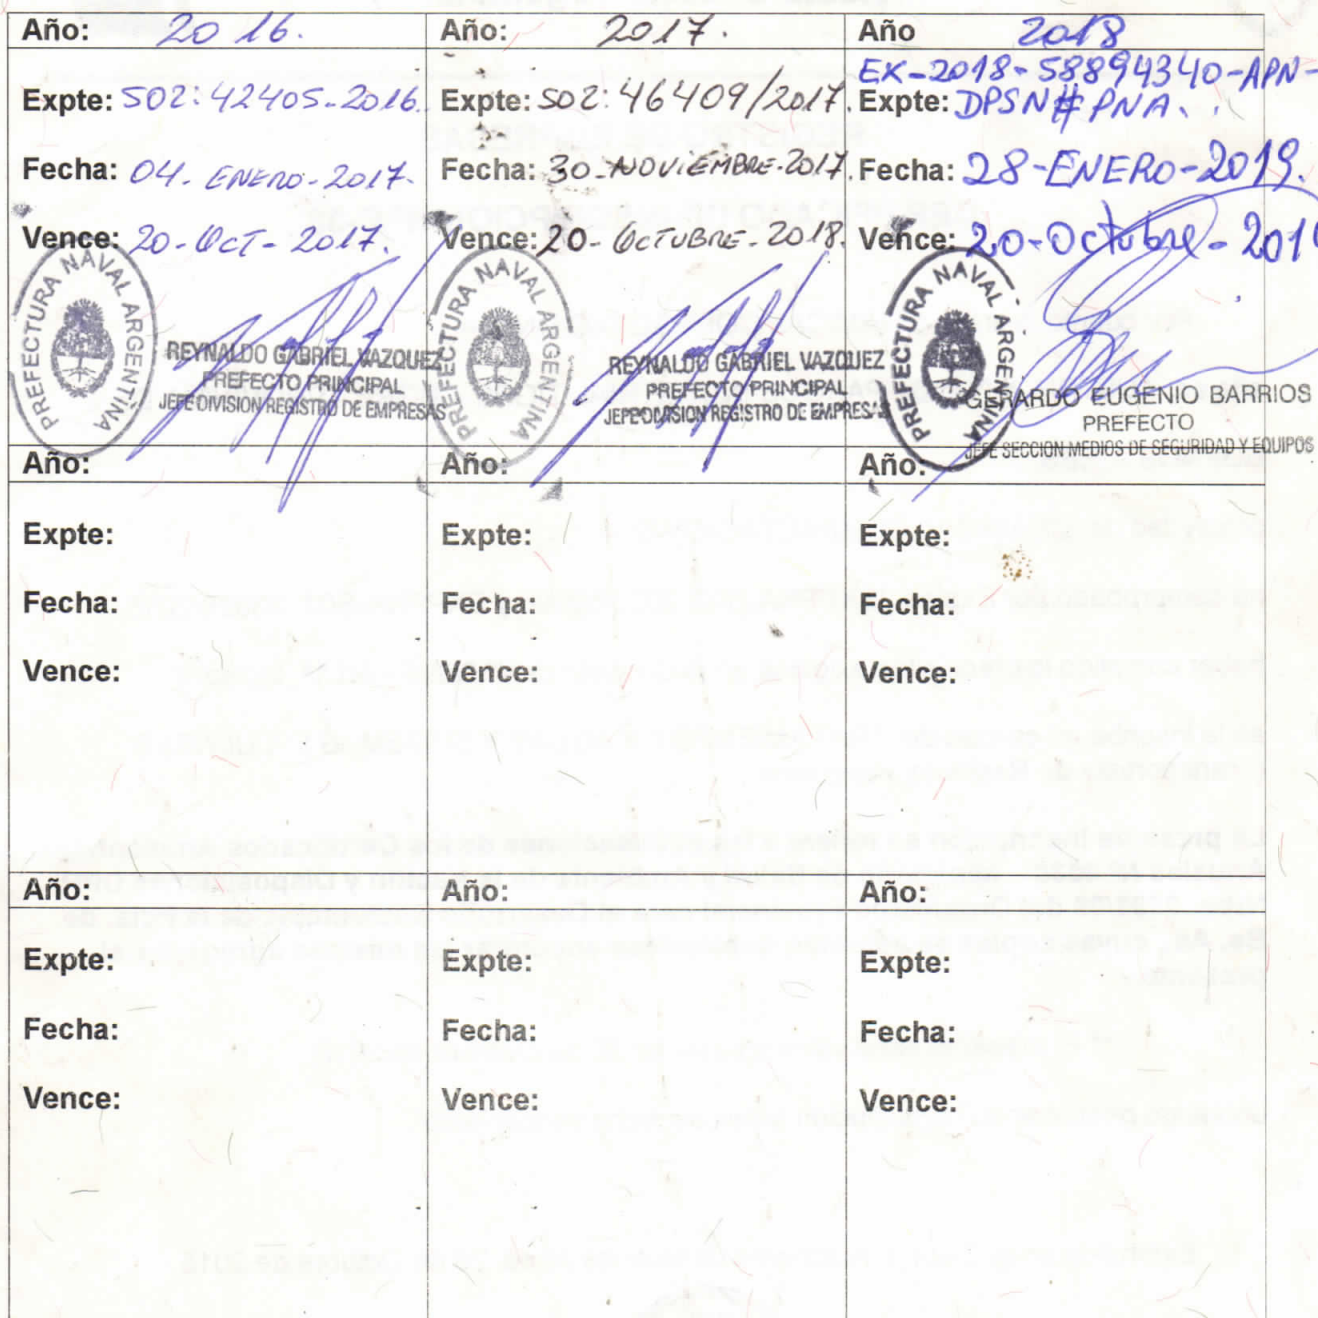 Año: 2016.
Expte: S02: 42405-2016.
Fecha: 04. ENERO-2017.
Vence: 20-OCT-2017.
PREFECTURA NAVAL ARGENTINA
REYNALDO GABRIEL VAZQUEZ
PREFECTO PRINCIPAL
JEFE DIVISION REGISTRO DE EMPRESAS
Año: 2017.
Expte: S02: 46409/2017.
Fecha: 30-NOVIEMBRE-2017.
Vence: 20-OCTUBRE-2018.
PREFECTURA NAVAL ARGENTINA
REYNALDO GABRIEL VAZQUEZ
PREFECTO PRINCIPAL
JEFE DIVISION REGISTRO DE EMPRESAS
Año 2018
EX-2018-58894340-APN-
Expte: DPSN#PNA.
Fecha: 28-ENERO-2019.
Vence: 20-Octubre-201
PREFECTURA NAVAL ARGENTINA
GERARDO EUGENIO BARRIOS
PREFECTO
JEFE SECCION MEDIOS DE SEGURIDAD Y EQUIPOS
Año:
Expte:
Fecha:
Vence:
Año:
Expte:
Fecha:
Vence:
Año:
Expte:
Fecha:
Vence:
Año:
Expte:
Fecha:
Vence:
Año:
Expte:
Fecha:
Vence:
Año:
Expte:
Fecha:
Vence: